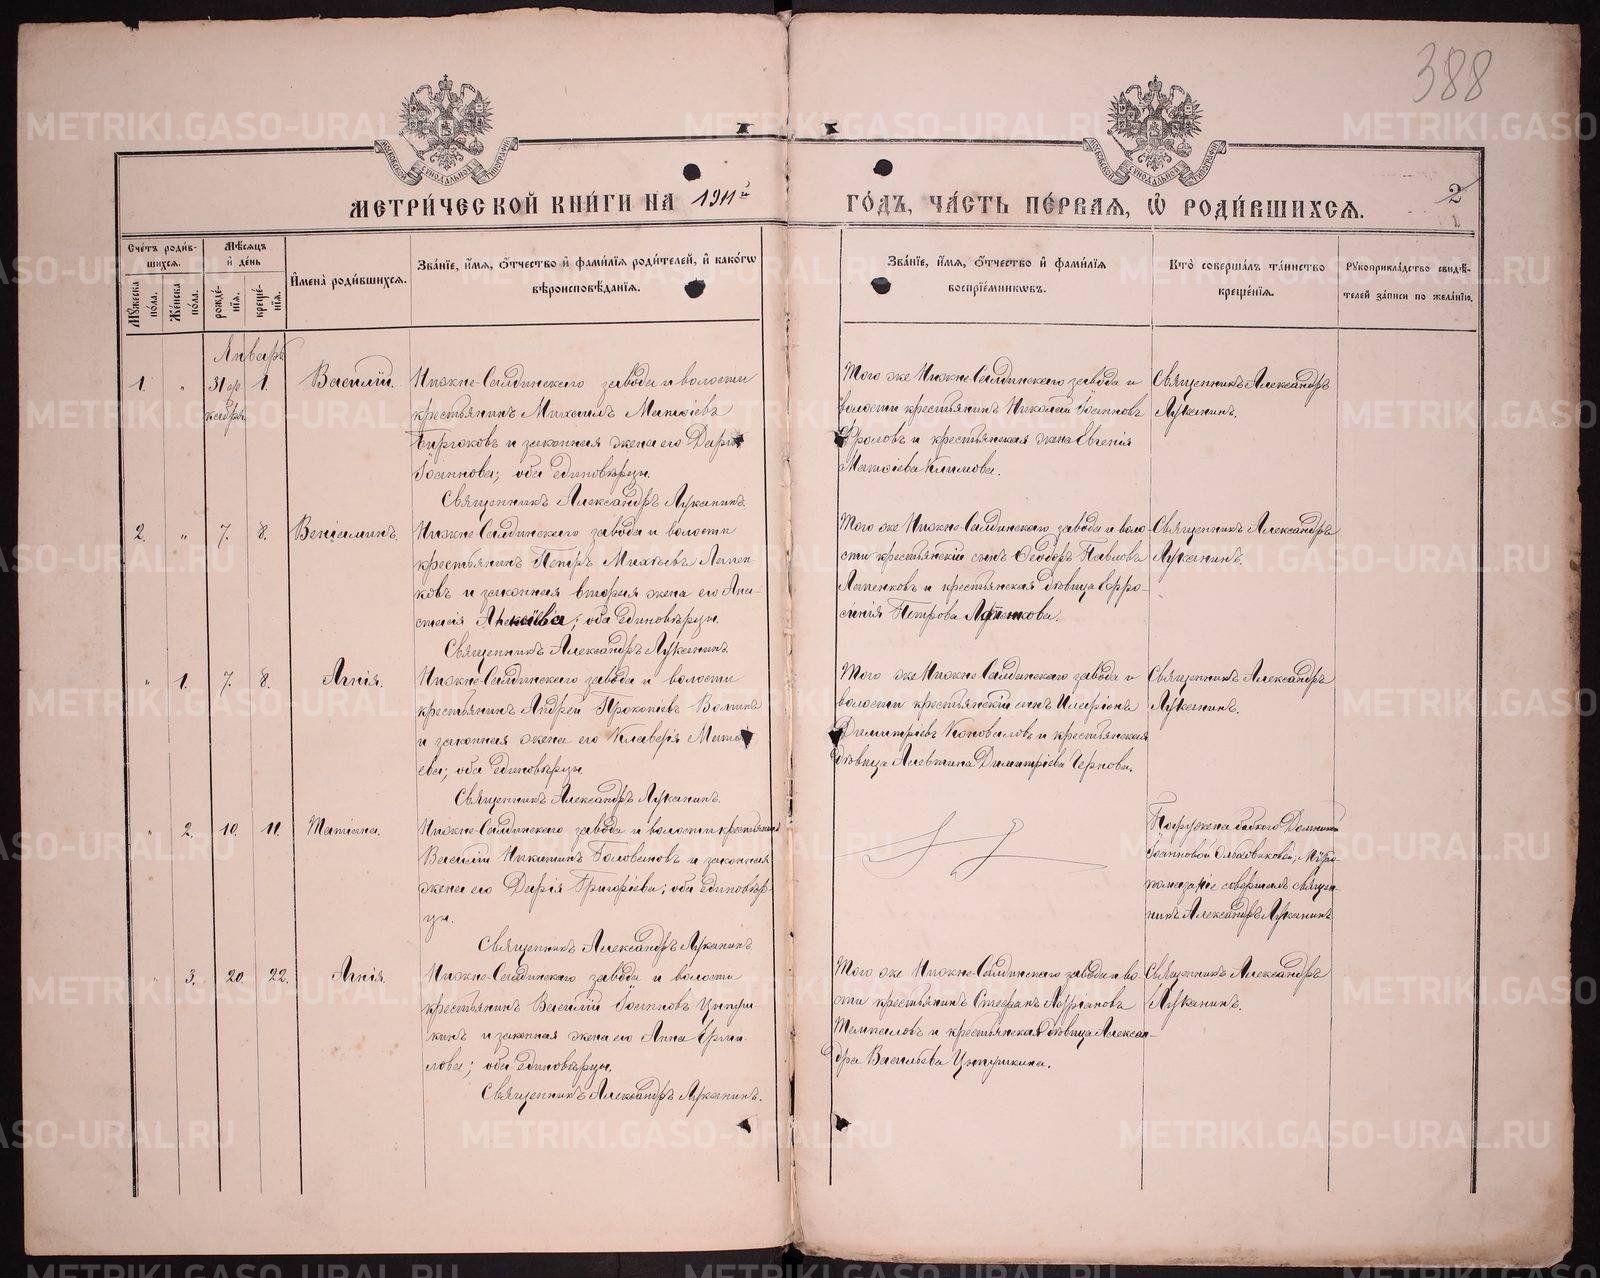 388
МОСКОВСКОЙ СѴНОДАЛЬНОЙ ТИПОГРАФІИ
МОСКОВСКОЙ СѴНОДАЛЬНОЙ ТИПОГРАФІИ
МЕТРИ́ЧЕСКОЙ КНИ́ГИ НА 1911й
ГО́ДЪ, ЧА́СТЬ ПЕ́РВАЯ, Ѽ РОДИ́ВШИХСЯ.
2
Сче́тъ роди́вшихся.
Мѣ́сяцъ и҆ де́нь
Мꙋ́жеска по́ла.
Же́нска по́ла.
рожде́нїѧ.
креще́нїѧ.
И҆мена̀ роди́вшихсѧ.
Зва́нїе, и҆́мѧ, ѻ҆́тчество и҆ фамилїѧ роди́телей, и҆ како́гѡ
вѣроисповѣ́данїѧ.
Зва́нїе, и҆́мѧ, ѻ҆́тчество и҆ фами́лїѧ
воспрїе́мниковъ.
Кто̀ соверша́лъ та́инство
креще́нїѧ.
Рꙋкоприкла́дство свидѣ́-
телей за́писи по жела́нїю.
Январь
1. " 31 декабрь 1. Василій.
Нижне-Салдинскаго завода и волости
крестьянинъ Михаилъ Матѳіевъ
и законная жена его Дарія
Іоаннова; оба единовѣрцы.
Священникъ Александръ Луканинъ.
Того же Нижне-Салдинскаго завода и
волости крестьянинъ Николай Іоанновъ
Фроловъ и крестьянская жена Евгенія
Матѳіева Климова.
Священникъ Александръ
Луканинъ.
2. " 7. 8. Веніаминъ.
Нижне-Салдинскаго завода и волости
крестьянинъ Петръ Михѣевъ Лапен-
ковъ и законная вторая жена его Ана-
стасія Алексіева; оба единовѣрцы.
Священникъ Александръ Луканинъ.
Того же Нижне-Салдинскаго завода и воло-
сти крестьянскій сынъ Ѳеодоръ Павловъ
Лапенковъ и крестьянская дѣвица Евфро-
синія Петрова
Священникъ Александръ
Луканинъ.
" 1. 7. 8. Агнія.
Нижне-Салдинскаго завода и волости
крестьянинъ Андрей Прокопіевъ Волгинъ
и законная жена его Клавдія Матѳі-
ева; оба единовѣрцы.
Священникъ Александръ Луканинъ.
Того же Нижне-Салдинскаго завода и
волости крестьянскій сынъ Иларіонъ
Димитріевъ Коноваловъ и крестьянская
дѣвица Алевтина Димитріева Чернова.
Священникъ Александръ
Луканинъ.
" 2. 10. 11. Татіана.
Нижне-Салдинскаго завода и волости крестьянинъ
Василій Никитинъ Головановъ и законная
жена его Дарія Григоріева; оба единовѣр-
цы.
Священникъ Александръ Луканинъ.
Погружена бабкою
Іоанновой Ольховиковой; мѵро-
помазаніе совершалъ священ-
никъ Александръ Луканинъ.
" 3. 20. 22. Агнія.
Нижне-Салдинскаго завода и волости
крестьянинъ Василій Іоанновъ Цыпуш-
кинъ и законная жена его Анна Ерми-
лова; оба единовѣрцы.
Священникъ Александръ Луканинъ.
Того же Нижне-Салдинскаго завода и во-
сти крестьянинъ Стефанъ Адріановъ
и крестьянская дѣвица Алексан-
дра Васильева Цыпушкина.
Священникъ Александръ
Луканинъ.
METRIKI.GASO-URAL.RU